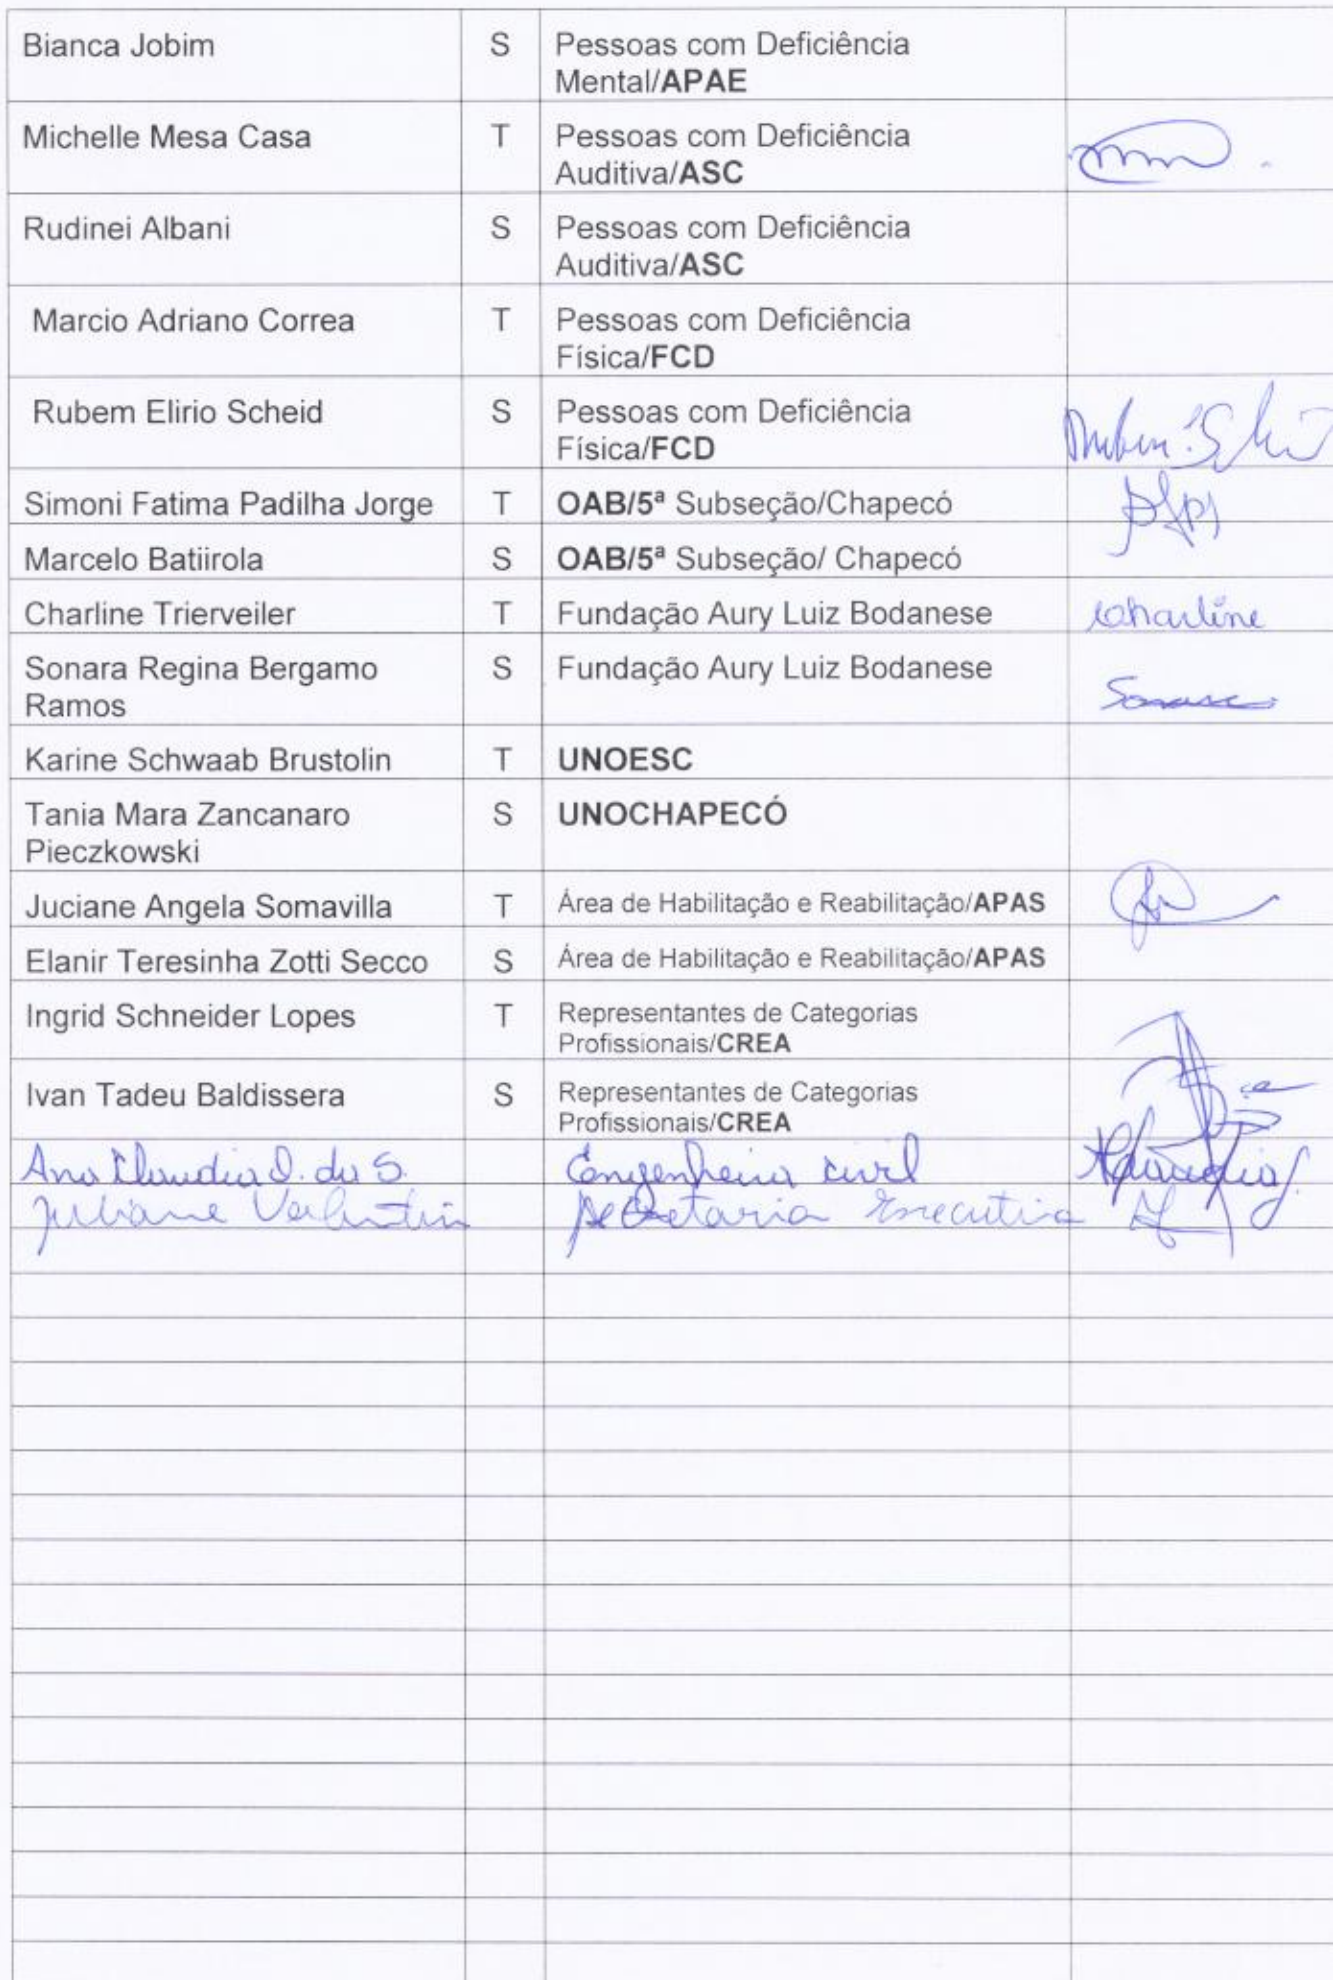 Bianca Jobim S Pessoas com Deficiência
Mental/APAE
Michelle Mesa Casa T Pessoas com Deficiência
Auditiva/ASC
Rudinei Albani S Pessoas com Deficiência
Auditiva/ASC
Marcio Adriano Correa T Pessoas com Deficiência
Física/FCD
Rubem Elirio Scheid S Pessoas com Deficiência
Física/FCD
Simoni Fatima Padilha Jorge T OAB/5ª Subseção/Chapecó
Marcelo Batiirola S OAB/5ª Subseção/ Chapecó
Charline Trierveiler T Fundação Aury Luiz Bodanese Charline
Sonara Regina Bergamo S Fundação Aury Luiz Bodanese
Ramos
Karine Schwaab Brustolin T UNOESC
Tania Mara Zancanaro S UNOCHAPECÓ
Pieczkowski
Juciane Angela Somavilla T Área de Habilitação e Reabilitação/APAS
Elanir Teresinha Zotti Secco S Área de Habilitação e Reabilitação/APAS
Ingrid Schneider Lopes T Representantes de Categorias
Profissionais/CREA
Ivan Tadeu Baldissera S Representantes de Categorias
Profissionais/CREA
Ana Claudia D. da S. Engenheira civil
Juliane Valentin Secretaria Executiva